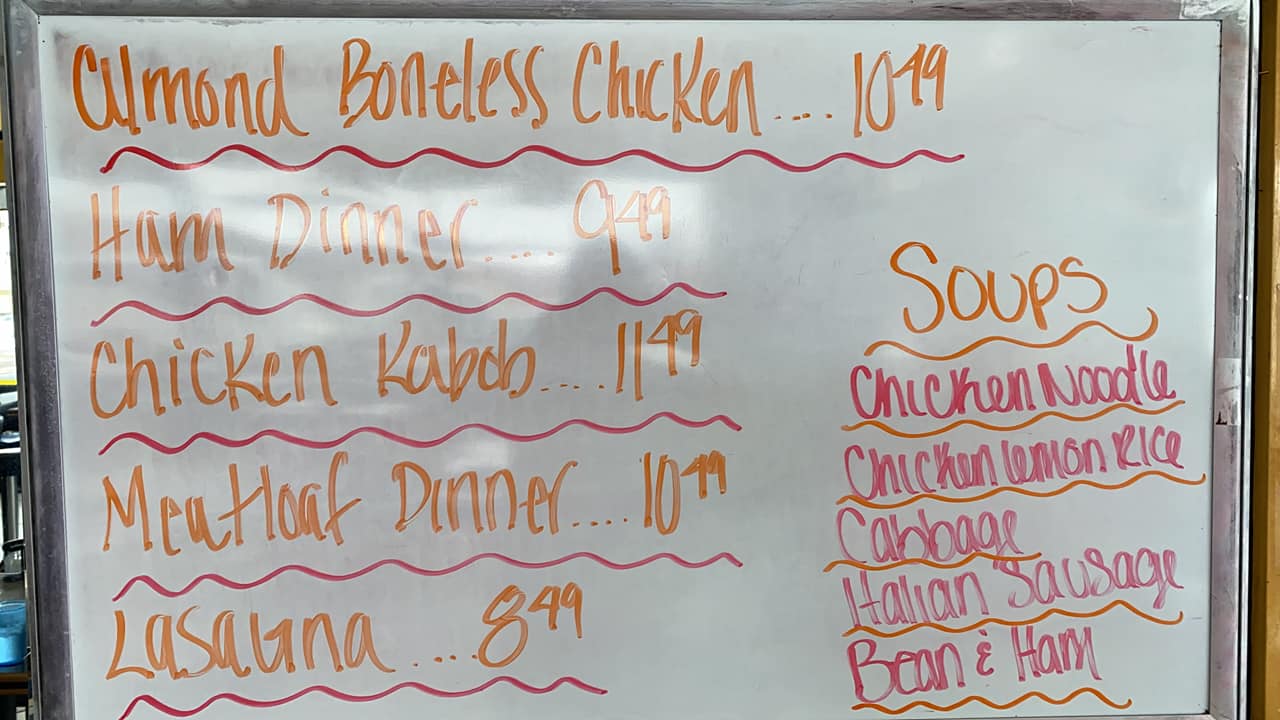 Almond Boneless Chicken .... 10 49
Ham Dinner .... 9 49
Chicken Kabob .... 11 49
Meatloaf Dinner .... 10 49
Lasagna .... 8 49
Soups
Chicken Noodle
Chicken lemon Rice
Cabbage
Italian Sausage
Bean & Ham